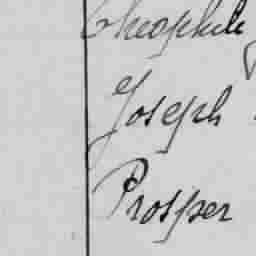 Théophile
Joseph
Prosper